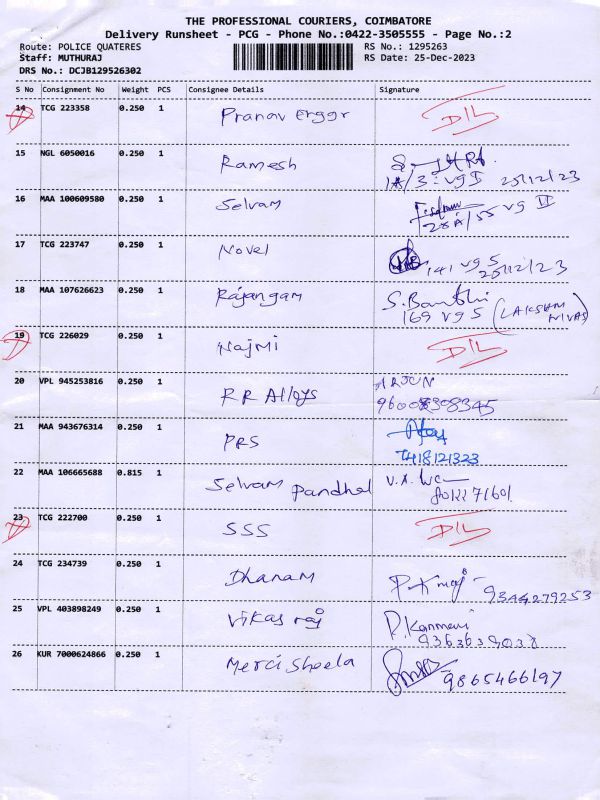 THE PROFESSIONAL COURIERS, COIMBATORE
Delivery Runsheet - PCG - Phone No.:0422-3505555 - Page No.:2
Route: POLICE QUATERES RS No.: 1295263
Staff: MUTHURAJ RS Date: 25-Dec-2023
DRS No.: DCJB129526302
S No Consignment No Weight PCS Consignee Details Signature
14 TCG 223358 0.250 1 Pranav D/L
15 NGL 6050016 0.250 1 Ramesh
25/12/23
16 MAA 100609580 0.250 1 Selvam
28A/55 vg II
17 TCG 223747 0.250 1 Novel
141 vg 5
25/12/23
18 MAA 107626623 0.250 1 Rajangam
169 vg 5 (LAKSHMI NIVAS)
19 TCG 226029 0.250 1 Najmi D/L
20 VPL 945253816 0.250 1 RR Alloys ARJUN
21 MAA 943676314 0.250 1 PRS
7418121323
22 MAA 106665688 0.815 1 Selvam Pandhal
23 TCG 222700 0.250 1 SSS D/L
24 TCG 234739 0.250 1 Dhanam
9344279253
25 VPL 403898249 0.250 1 Vikas raj
26 KUR 7000624866 0.250 1 Merci Sheela
9865466197